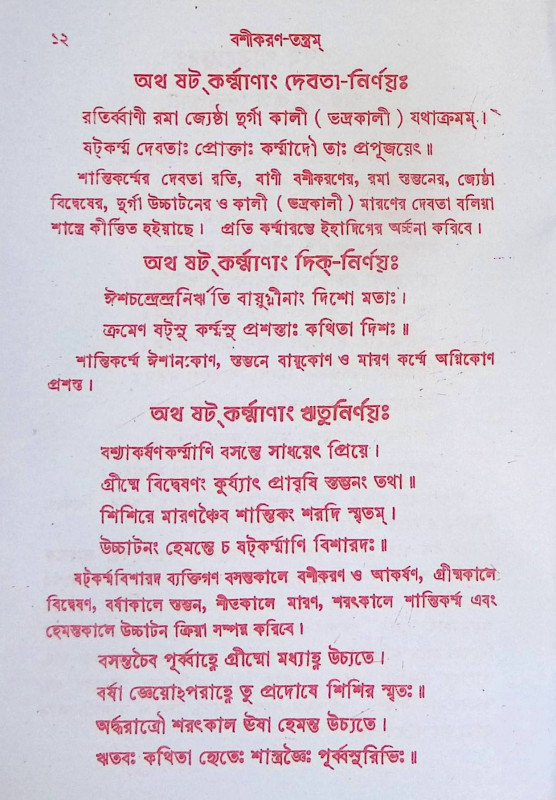 ১২ বশীকরণ-তন্ত্রম্
অথ ষট্ কর্ম্মাণাং দেবতা-নির্ণয়ঃ
রতির্ব্বাণী রমা জ্যেষ্ঠা দুর্গা কালী ( ভদ্রকালী ) যথাক্রমম্।
ষট্কর্ম্ম দেবতাঃ প্রোক্তাঃ কর্ম্মাদৌ তাঃ প্রপূজয়েৎ॥
শান্তিকর্ম্মের দেবতা রতি, বাণী বশীকরণের, রমা স্তম্ভনের, জ্যেষ্ঠা
বিদ্বেষের, দুর্গা উচ্চাটনের ও কালী ( ভদ্রকালী ) মারণের দেবতা বলিয়া
শাস্ত্রে কীর্ত্তিত হইয়াছে। প্রতি কর্ম্মারম্ভে ইহাদিগের অর্চ্চনা করিবে।
অথ ষট্ কর্ম্মাণাং দিক্-নির্ণয়ঃ
ঈশচন্দ্রেন্দ্রনির্ঋতি বায়ুগ্নীনাং দিশো মতাঃ।
ক্রমেণ ষট্সু কর্ম্মসু প্রশস্তাঃ কথিতা দিশঃ॥
শান্তিকর্ম্মে ঈশানকোণ, স্তম্ভনে বায়ুকোণ ও মারণ কর্ম্মে অগ্নিকোণ
প্রশস্ত।
অথ ষট্ কর্ম্মাণাং ঋতুনির্ণয়ঃ
বশ্যাকর্ষণকর্ম্মাণি বসন্তে সাধয়েৎ প্রিয়ে।
গ্রীষ্মে বিদ্বেষণং কুর্য্যাৎ প্রাবৃষি স্তম্ভনং তথা॥
শিশিরে মারণঞ্চৈব শান্তিকং শরদি স্মৃতম্।
উচ্চাটনং হেমন্তে চ ষট্কর্ম্মাণি বিশারদঃ॥
ষট্কর্ম্মবিশারদ ব্যক্তিগণ বসন্তকালে বশীকরণ ও আকর্ষণ, গ্রীষ্মকালে
বিদ্বেষণ, বর্ষাকালে স্তম্ভন, শীতকালে মারণ, শরৎকালে শান্তিকর্ম্ম এবং
হেমন্তকালে উচ্চাটন ক্রিয়া সম্পন্ন করিবে।
বসন্তচৈব পূর্ব্বাহ্ণে গ্রীষ্মো মধ্যাহ্ণ উচ্যতে।
বর্ষা জ্ঞেয়োঽপরাহ্ণে তু প্রদোষে শিশির স্মৃতঃ॥
অর্দ্ধরাত্রৌ শরৎকাল ঊষা হেমন্ত উচ্যতে।
ঋতবঃ কথিতা হ্যেতেঃ শাস্ত্রজ্ঞৈঃ পূর্ব্বসুরিভিঃ॥